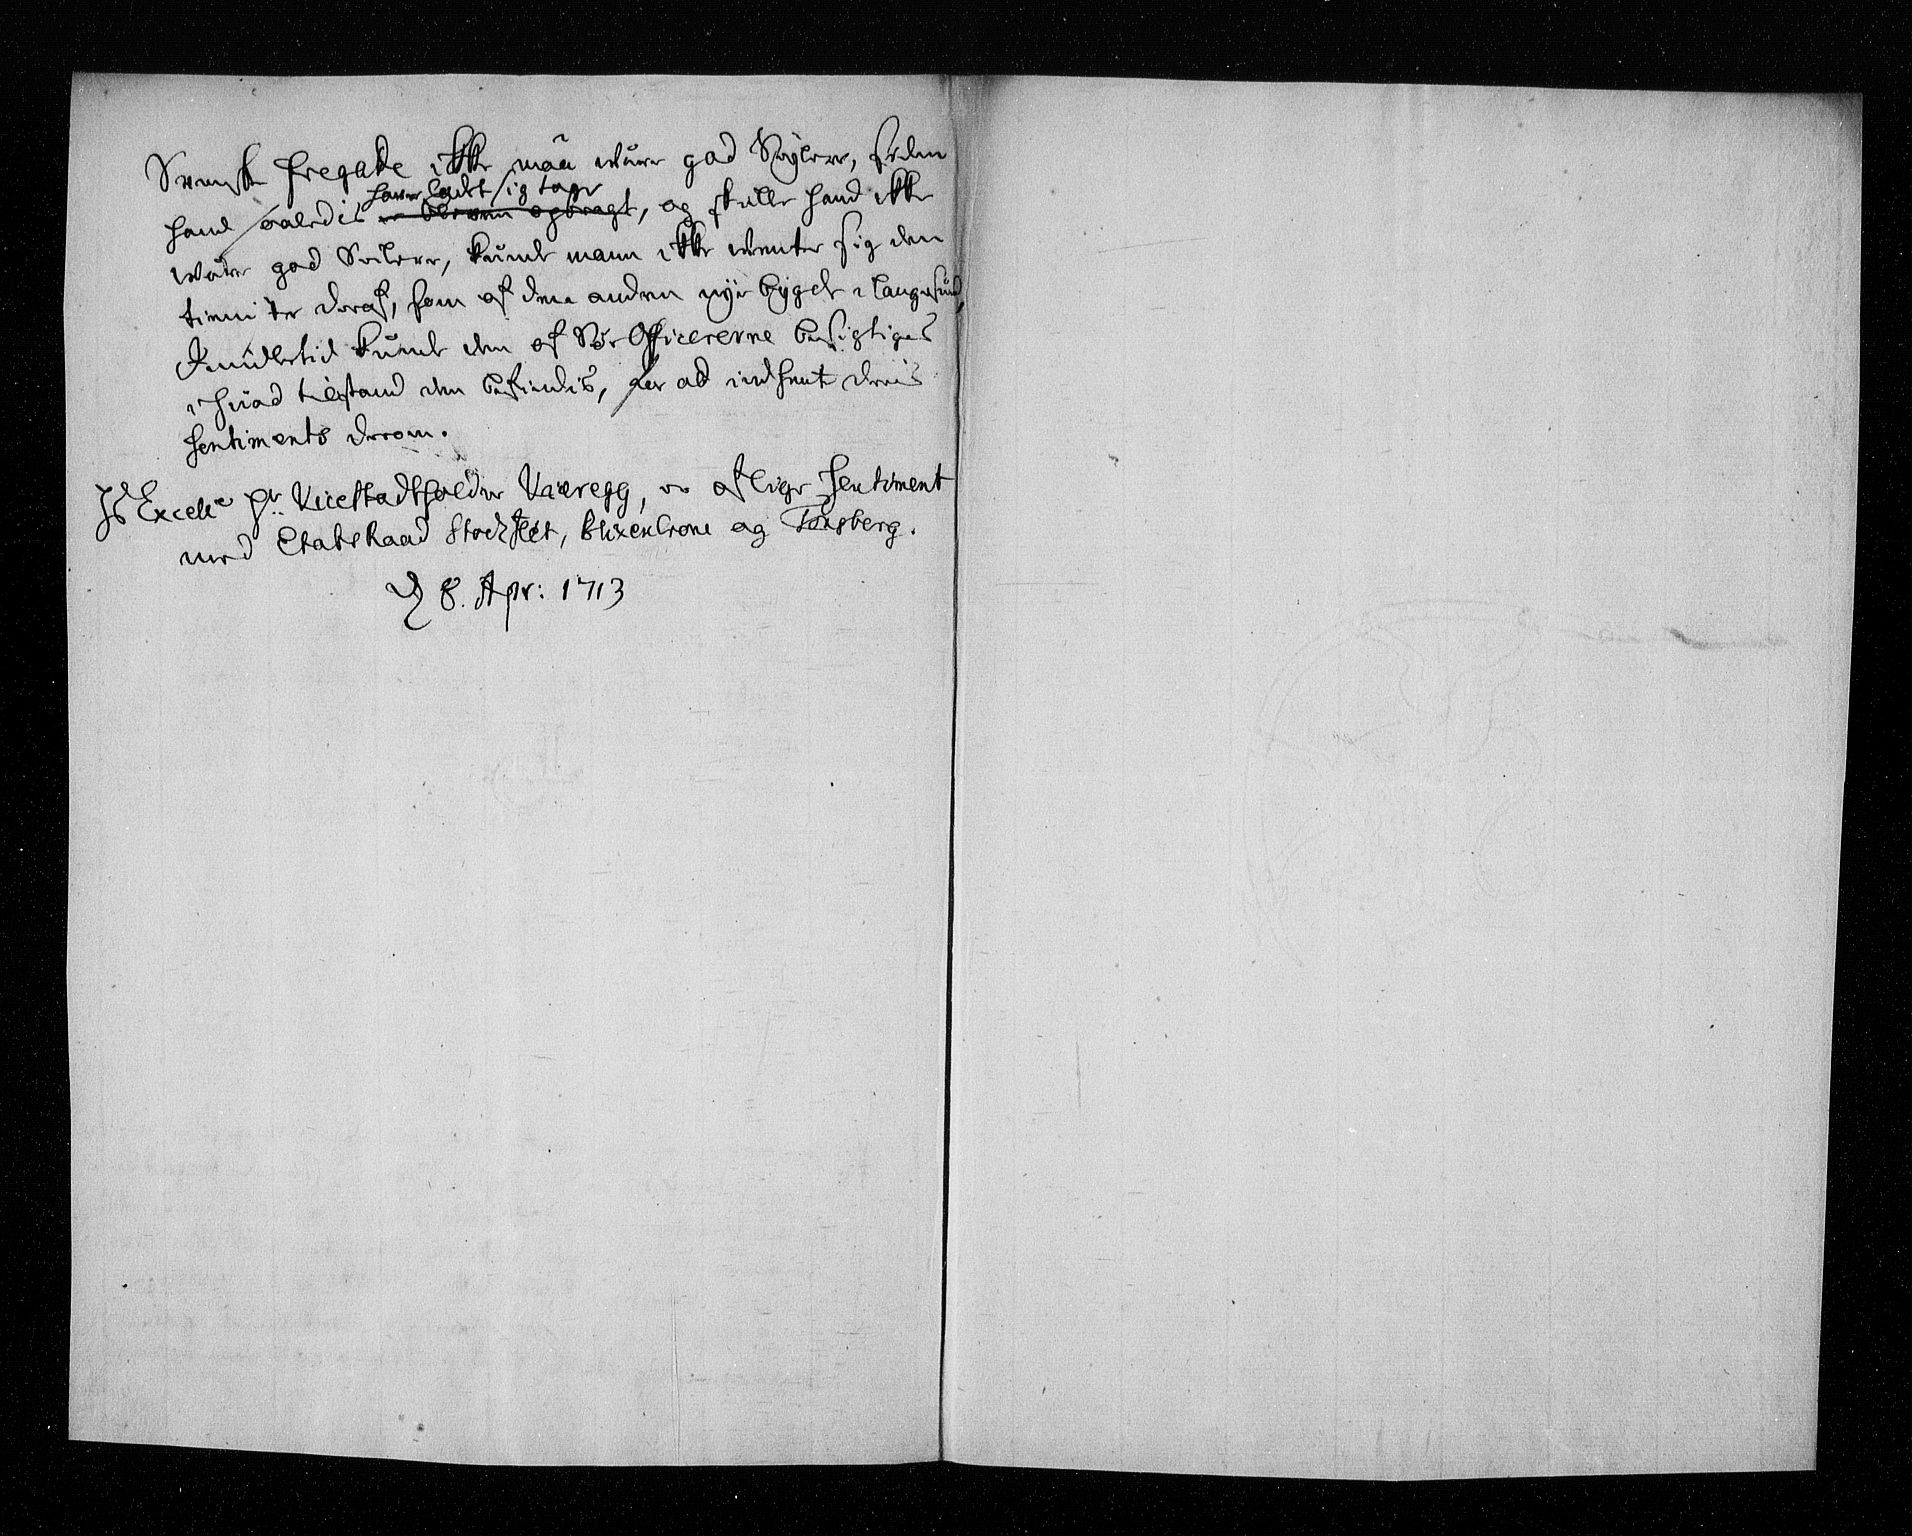 Svensk Fregatte ikke maa wære god Seylere, siden
hand saaledis ~~er bleven opbragt~~ haver ladet sig tage, og skulle hand ikke
wære god Seilere, kunde mann ikke wente sig den
tienniste deraf, som af den anden nyie bygdt i Langesund,
Imidlertid kunde den af Søe Officererne besigtiges
i hvad tilstand den befindis, for at indhente deris
Sentiments derom.
Hs Excell: Hr: Vicestadtholder Vaeregg, er af lige Sentiment
med Etatsraad Stockflet, Blixencrone og Tonsberg.
D 8. Apr: 1713